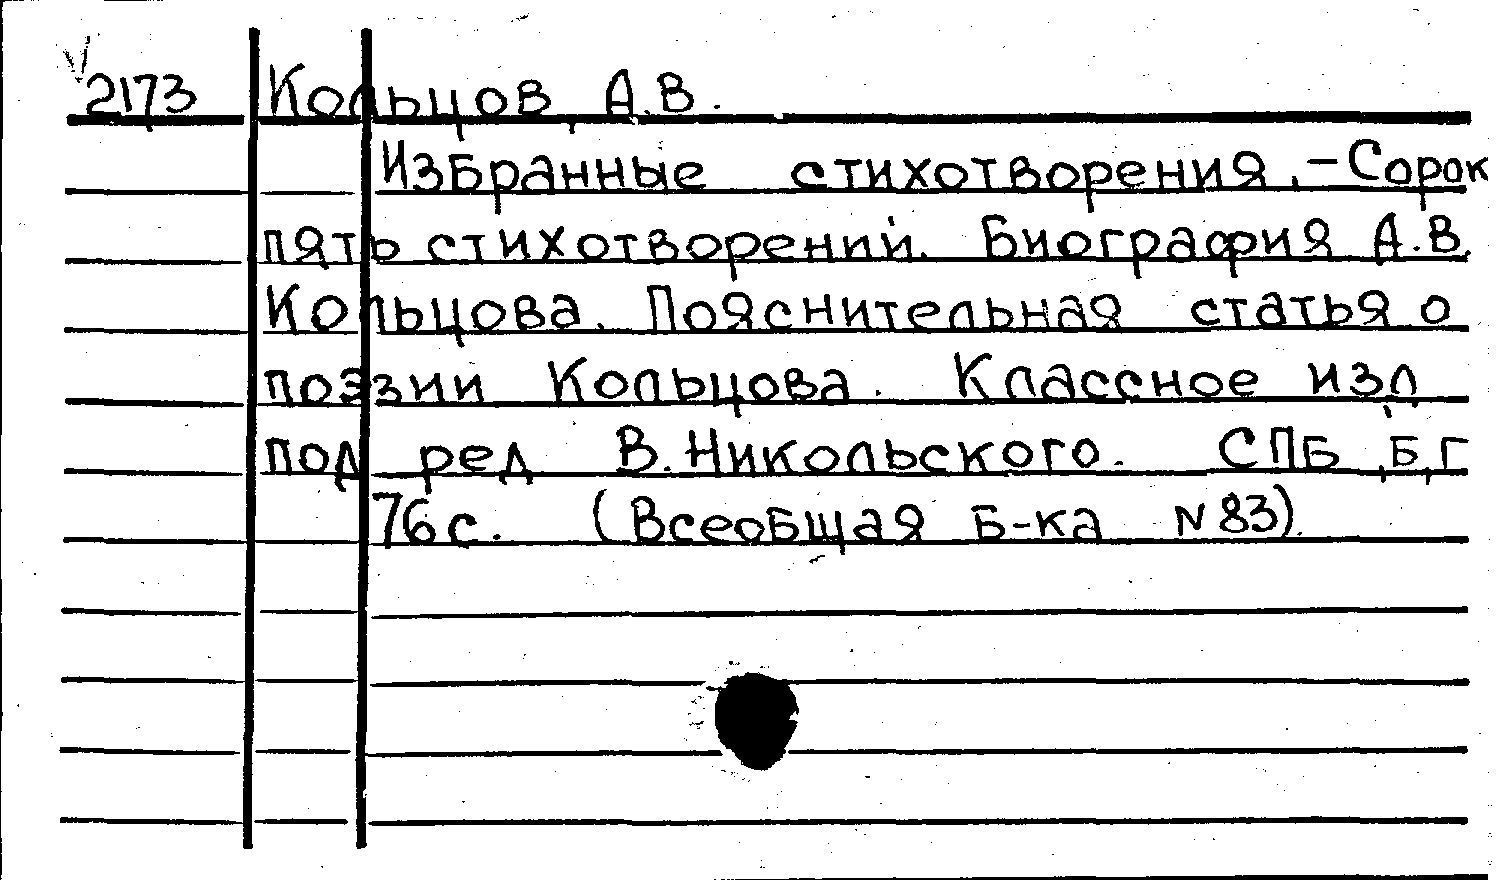 2173 Кольцов, А.В.
Избранные стихотворения. - Сорок
пять стихотворений. Биография А.В.
Кольцова. Пояснительная статья о
поэзии Кольцова. Классное изд.
под ред В. Никольского. СПБ, Б,Г
76 с. (Всеобщая Б-ка N 83).